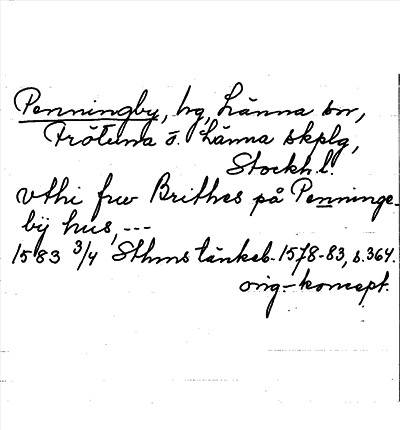 Penningby, hg, Länna sn,
Frötuna o. Länna skplg,
Stockh. l.
vthi frw Brithes på Penninge-
bij hus, ---
1583 3/4 Sthms tänkeb. 1578-83, s. 364.
orig.-koncept.